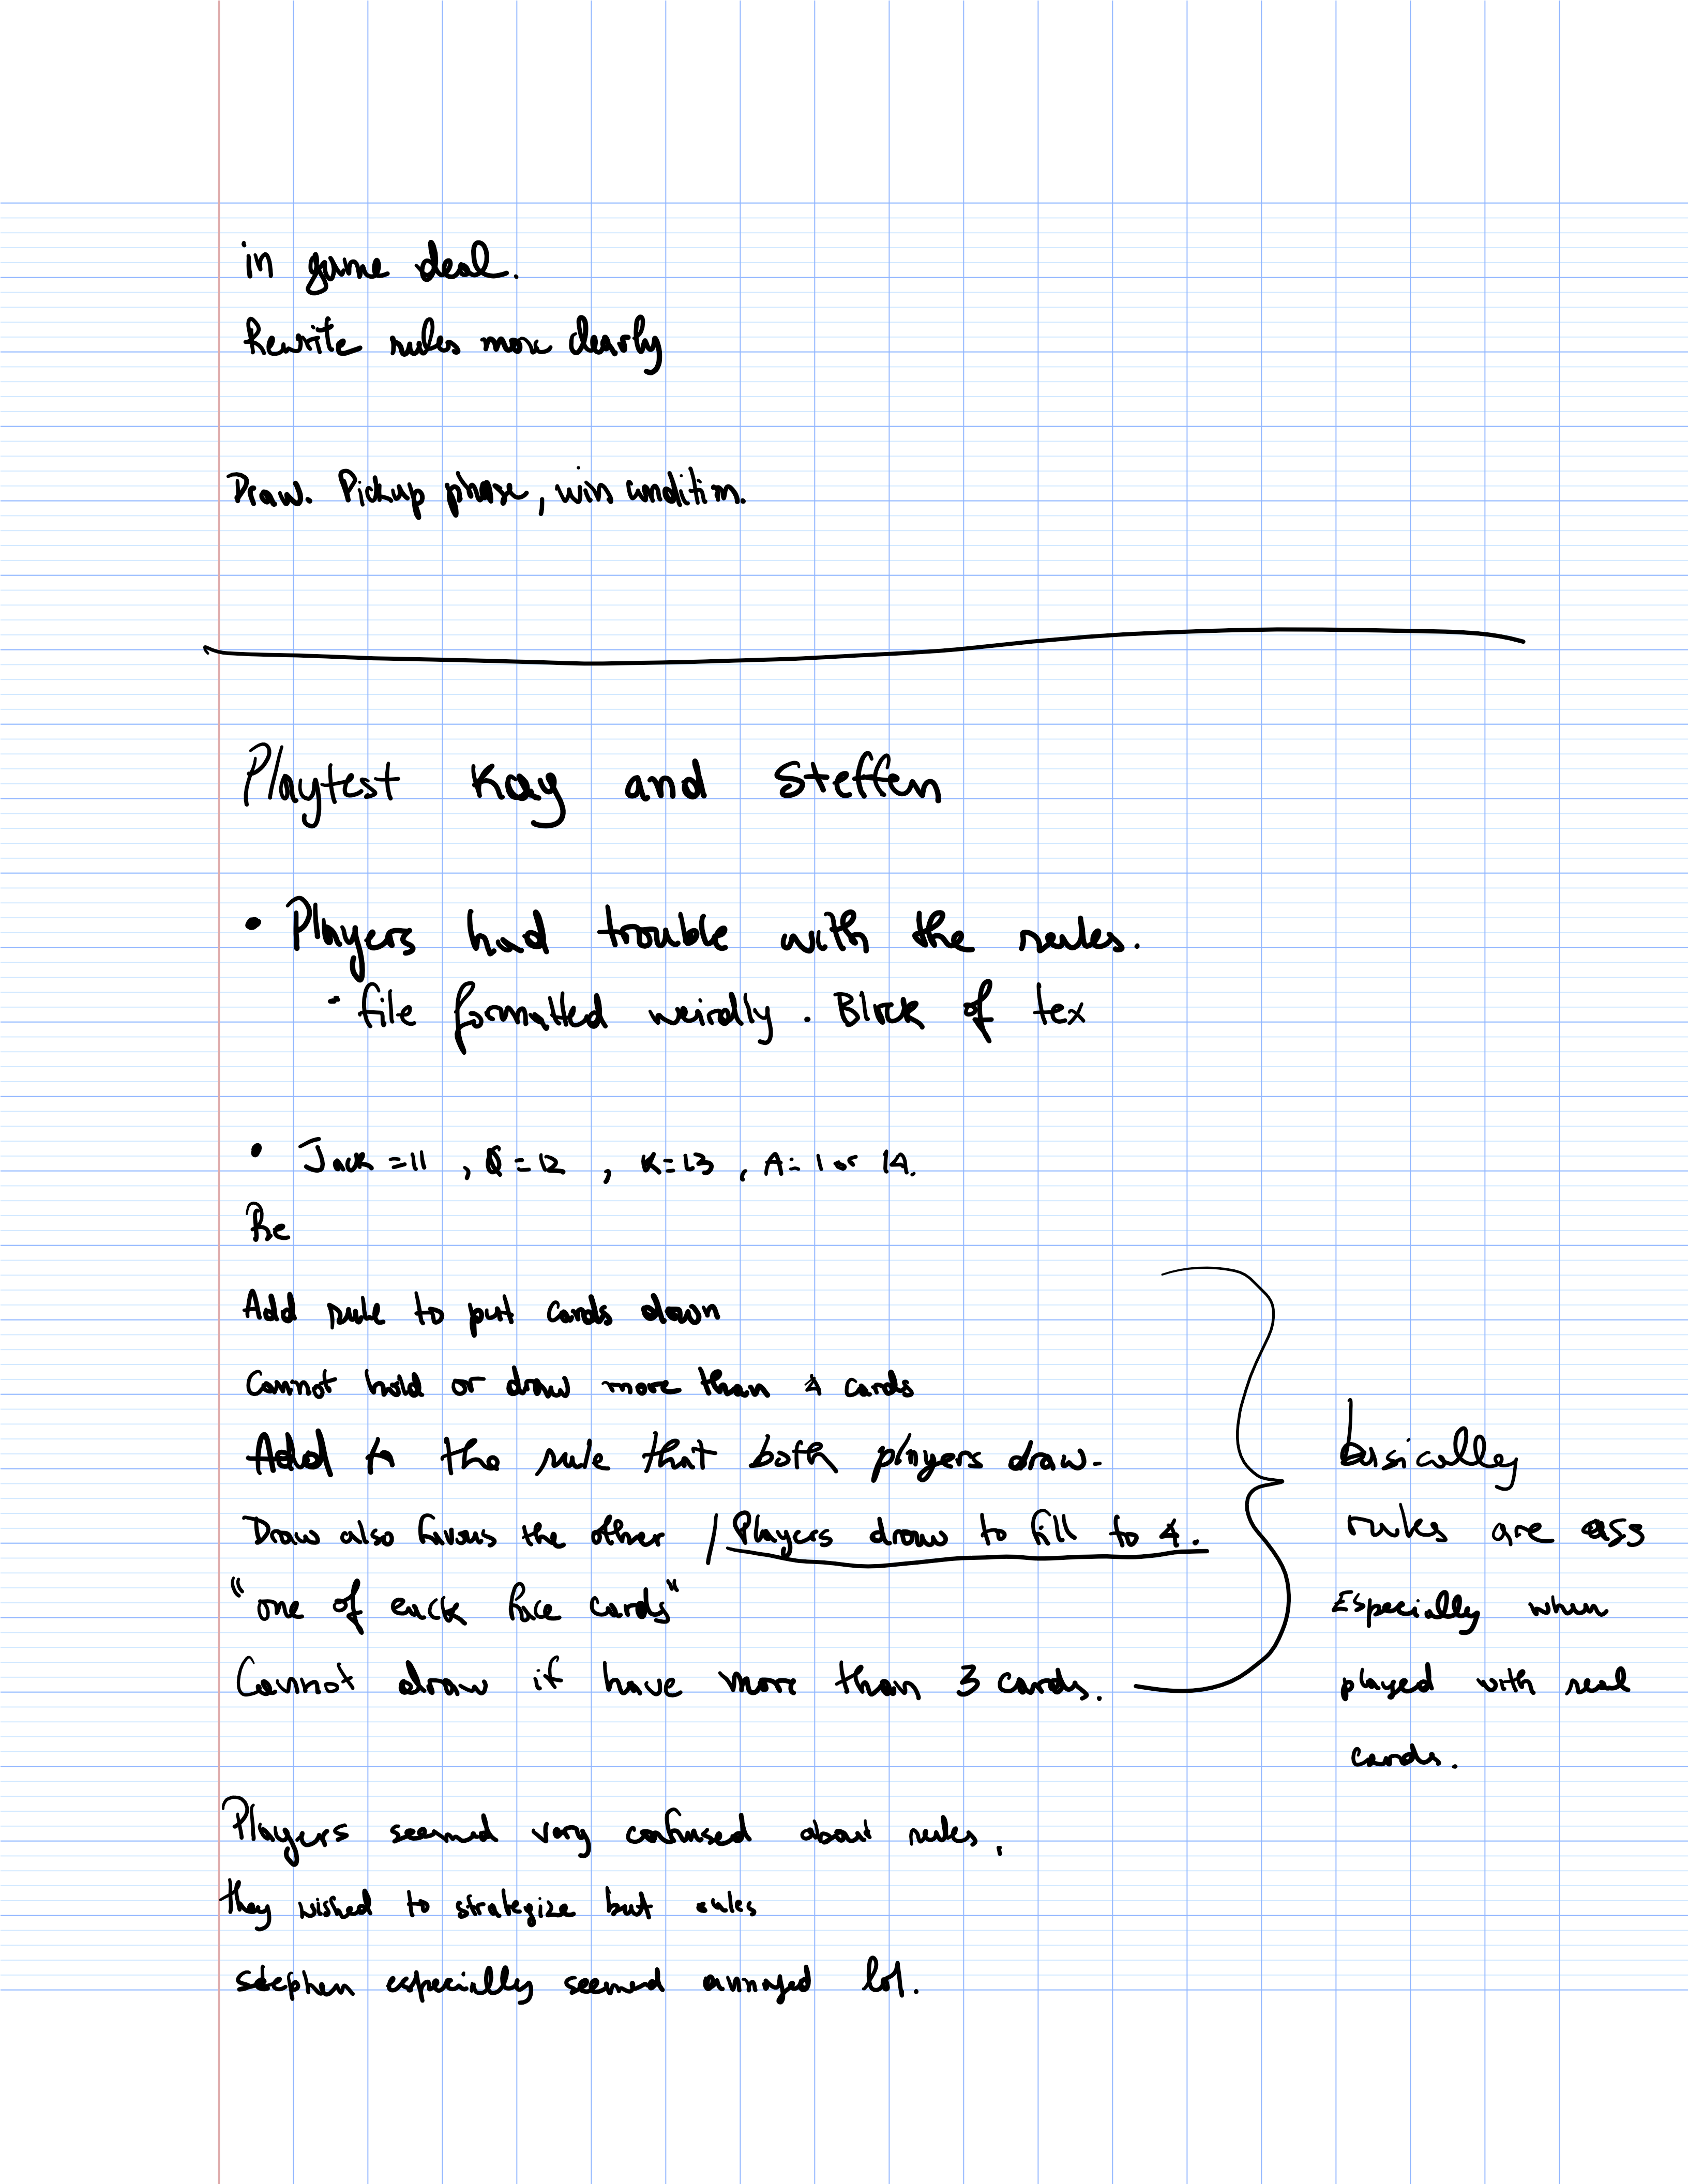 in game deal.
Rewrite rules more clearly
Draw. Pickup phase, win condition.
Playtest Kay and Steffen
• Players had trouble with the rules.
• file formatted weirdly. Block of tex
• Jack = 11 , Q = 12 , K = 13 , A = 1 or 14.
Re
Add rule to put cards down
Cannot hold or draw more than 4 cards
Add to the rule that both players draw.
Draw also favors the other / Players draw to fill to 4.
"one of each face cards"
Cannot draw if have more than 3 cards.
basically
rules are ass
Especially when
played with real
cards.
Players seemed very confused about rules.
they wished to strategize but rules
Stephen especially seemed annoyed lol.